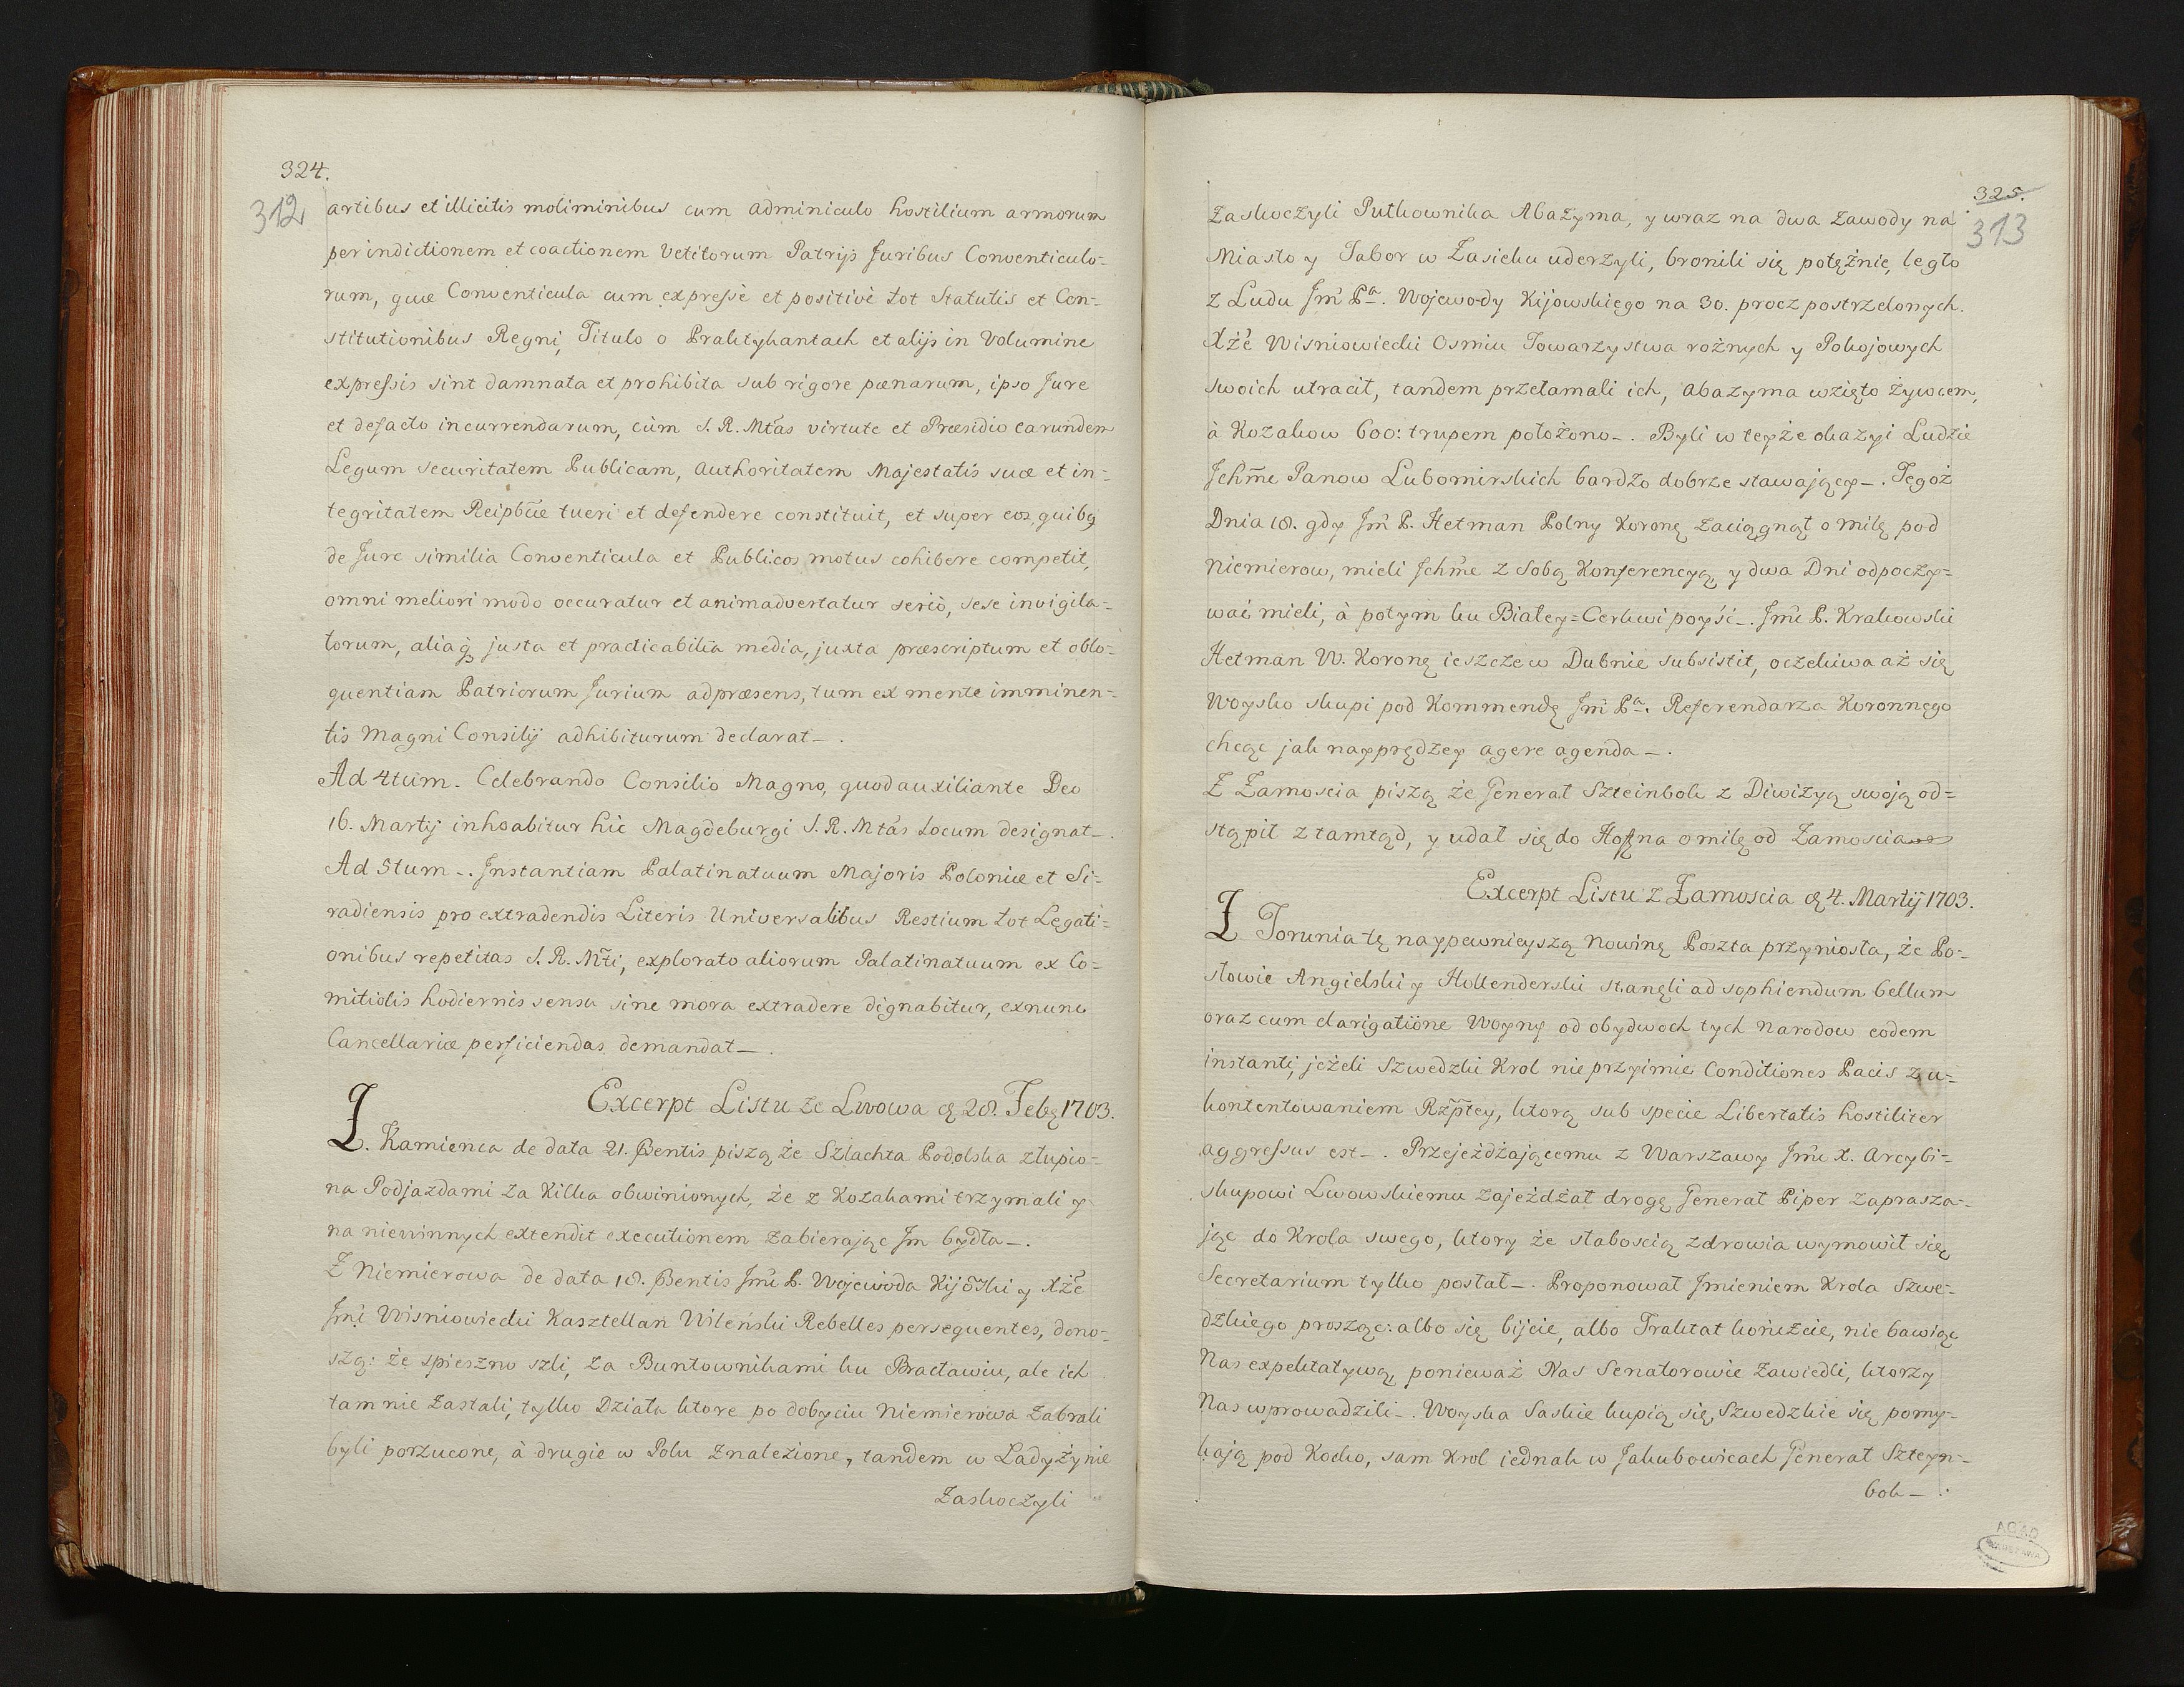 324.
312
artibus et illicitis moliminibus cum adminiculo hostilium armorum
per indictionem et coactionem vetitorum Patrijs Juribus Conventiculo=
rum, quæ Conventicula cum expressè et positivè tot Statutis et Con=
stitutionibus Regni, Titulo o Praktykantach et alijs in Volumine
expressis sint damnata et prohibita sub rigore pœnarum, ipso Jure
et defacto incurrendarum, cùm S. R. Mtas virtute et Præsidio earundem
Legum securitatem Publicam, Authoritatem Majestatis suæ et in=
tegritatem Reipbcæ tueri et defendere constituit, et super eos, quibꝫ
de Jure similia Conventicula et Publicos motus cohibere competit,
omni meliori modo occuratur et animadvertatur seriò, sese invigila=
torum, aliaqꝫ justa et practicabilia media, juxta præscriptum et oblo=
quentiam Patriorum Jurium ad præsens, tum ex mente imminen=
tis Magni Consilij adhibiturum declarat _ .
Ad 4tum. Celebrando Consilio Magno, quod auxiliante Deo
16. Martij inhoabitur hic Magdeburgi S. R. Mtas Locum designat _ .
Ad 5tum _ . Instantiam Palatinatuum Majoris Poloniæ et Si=
radiensis pro extradendis Literis Universalibus Restium tot Legati=
onibus repetitas S. R. Mti, explorato aliorum Palatinatuum ex Co=
mitiolis hodiernis sensu sine mora extradere dignabitur, exnunc
Cancellariæ perficiendas demandat _ .
Excerpt Listu ze Lwowa d 28. Feb 1703.
Z. Kamienca de data 21. Pentis piszą że Szlachta Podolska złupio=
na Podjazdami za kilka obwinionych, że z Kozakami trzymali y
na niewinnych extendit executionem zabierając Im bydła _ .
Z Niemierowa de data 18. Pentis Jmć P. Wojewoda Kijõski y Xżę
Jmć Wisniowiecki Kasztellan Wileński Rebelles persequentes, dono=
szą: że spieszno szli, za Buntownikami ku Bracławiu, ale ich
tam nie zastali, tylko Działa ktore po dobyciu Niemierowa zabrali
byli porzucone, à drugie w Polu znalezione, tandem w Ladyżynie
Zaskoczyli
325.
313
zaskoczyli Pułkownika Abazyma, y wraz na dwa zawody na
Miasto y Tabor w Zasieku uderzyli, bronili się potężnie, legło
z Ludu Jmć Pa. Wojewody Kijowskiego na 30. procz postrzelonych.
Xżę Wisniowiecki Osmiu Towarzystwa rożnych y Pokojowych
swoich utracił, tandem przełamali ich, Abazyma wzięto żywcem,
à Kozakow 600: trupem położono _ . Byli w teyże okazyi Ludzie
Ichmć Panow Lubomirskich bardzo dobrze stawający _ . Tegoż
Dnia 18. gdy Jmć P. Hetman Polny Koronę zaciągnął o milę pod
Niemierow, mieli Ichmć z sobą Konferencyą, y dwa Dni odpoczy=
wać mieli, à potym ku Białey=Cerkwi poyść _ . Jmć P. Krakowski
Hetman W. Koronę ieszcze w Dubnie subsistit, oczekiwa aż się
Woysko skupi pod Kommendę Jmć Pa. Referendarza Koronnego
chcąc jak nayprędzey agere agenda _ .
Z Zamoscia piszą że Generał Szteinbok z Diwizyą swoją od=
stąpił z tamtąd, y udał się do Hoſzna o milę od Zamoscia
Excerpt Listu z Zamoscia d 4. Martij 1703.
Z Torunia tę naypewnieyszą nowinę Poszta przyniosła, że Po=
słowie Angielski y Hollenderski stanęli ad sophiendum bellum
oraz cum clarigatione Woyny od obydwoch tych Narodow eodem
instanti, jeżeli Szwedzki Krol nie przyimie Conditiones Pacis z u=
kontentowaniem Rzptey, ktorą sub specie Libertatis hostiliter
aggressus est _ . Przejeżdżającemu z Warszawy Jmć X. Arcybi=
skupowi Lwowskiemu zajeżdżał drogę Generał Piper zaprasza=
jąc do Krola swego, ktory że słaboscią zdrowia wymowił się
Secretarium tylko posłał _ . Proponował Jmieniem Krola Szwe=
dzkiego prosząc: albo się bijcie, albo Traktat kończcie, nie bawiąc
Nas expektatywą, ponieważ Nas Senatorowie zawiedli, ktorzy
Nas wprowadzili _ . Woyska Saskie kupią się, Szwedzkie się pomy=
kają pod Kocko, sam Krol iednak w Jakubowicach Generał Szteyn=
bok _
AGAD
WARSZAWA